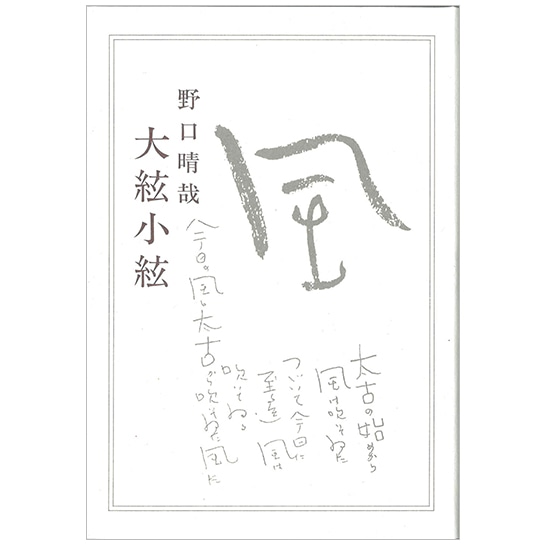 風
太古の始めから
風は吹いてゐた
つゞいて今日に
至る迄 風は
吹いてゐる
今日の風も太古から吹いてゐた風だ
野口晴哉
大絃小絃